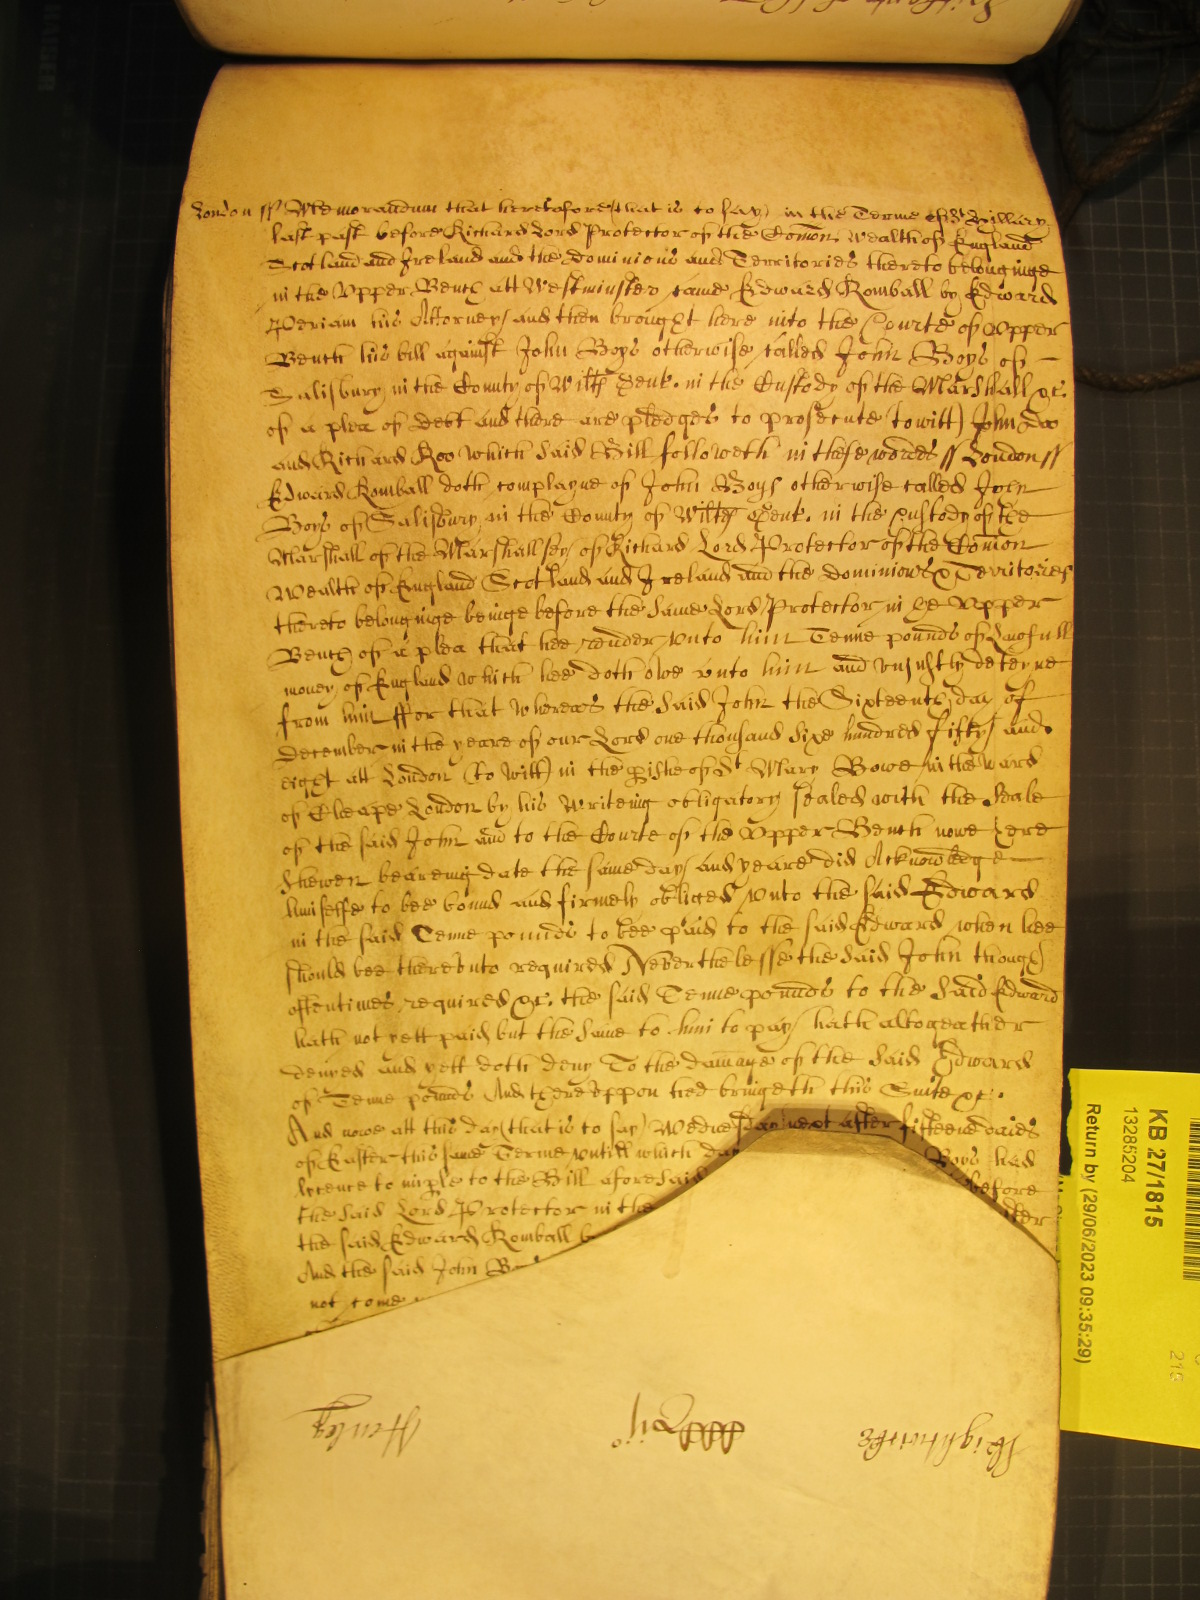 London ss Memorandum that heretofore (that is to say) in the Terme of St Hillary
last past before Richard Lord Protector of the Comon Wealth of England
Scotland and Ireland and the dominions and Territories thereto belonginge
in the Upper Bench att Westminster came Edward Romball by Edward
Periam his Attorney and then brought here into the Courte of Upper
Bench his bill against John Boys otherwise called John Boys of
Salisbury in the County of Wiltes Gent. in the Custody of the Marshall &c.
of a plea of debt and there are pledges to prosecute (to witt) John Doo
and Richard Roo which said Bill followeth in these wordes ss London ss
Edward Romball doth complayne of John Boys otherwise called John
Boys of Salisbury in the County of Wiltes Gent. in the custody of the
Marshall of the Marshallsey of Richard Lord Protector of the Comon
Wealth of England Scotland and Ireland and the dominions & Territories
thereto belonginge beinge before the same Lord Protector in ye Upper
Bench of a plea that hee render unto him Tenne pounds of Lawfull
money of England which hee doth owe unto him and unjustly deteyne
from him ffor that whereas the said John the Sixteenth day of
December in the yeare of our Lord one thousand Sixe hundred fifty and
eight att London (to witt) in the pishe of St Mary Bowe in the Ward
of Cheape London by his Writeing obligatory sealed with the Seale
of the said John and to the Courte of the Upper Bench nowe here
shewen beareing date the same day and yeare did Acknowledge
himselfe to bee bound and firmely obliged unto the said Edward
in the said Tenne pounds to bee paid to the said Edward when hee
should bee thereunto required Neverthelesse the said John though
oftentimes required &c. the said Tenne pounds to the said Edward
hath not yett paid but the same to him to pay hath altogeather
denyed and yett doth deny To the damage of the said Edward
of Tenne pounds And thereuppon hee bringeth this Suite &c.
And nowe att this day (that is to say) Wednesday next after fifteene daies
of Easter this same Terme untill which day Boys had
lycence to imple to the Bill aforesaid before
the said Lord Protector in the
the said Edward Romball b
And the said John Bo
not come
Henley
KB 27/1815
13285204
Return by (29/06/2023 09:35:29)
215